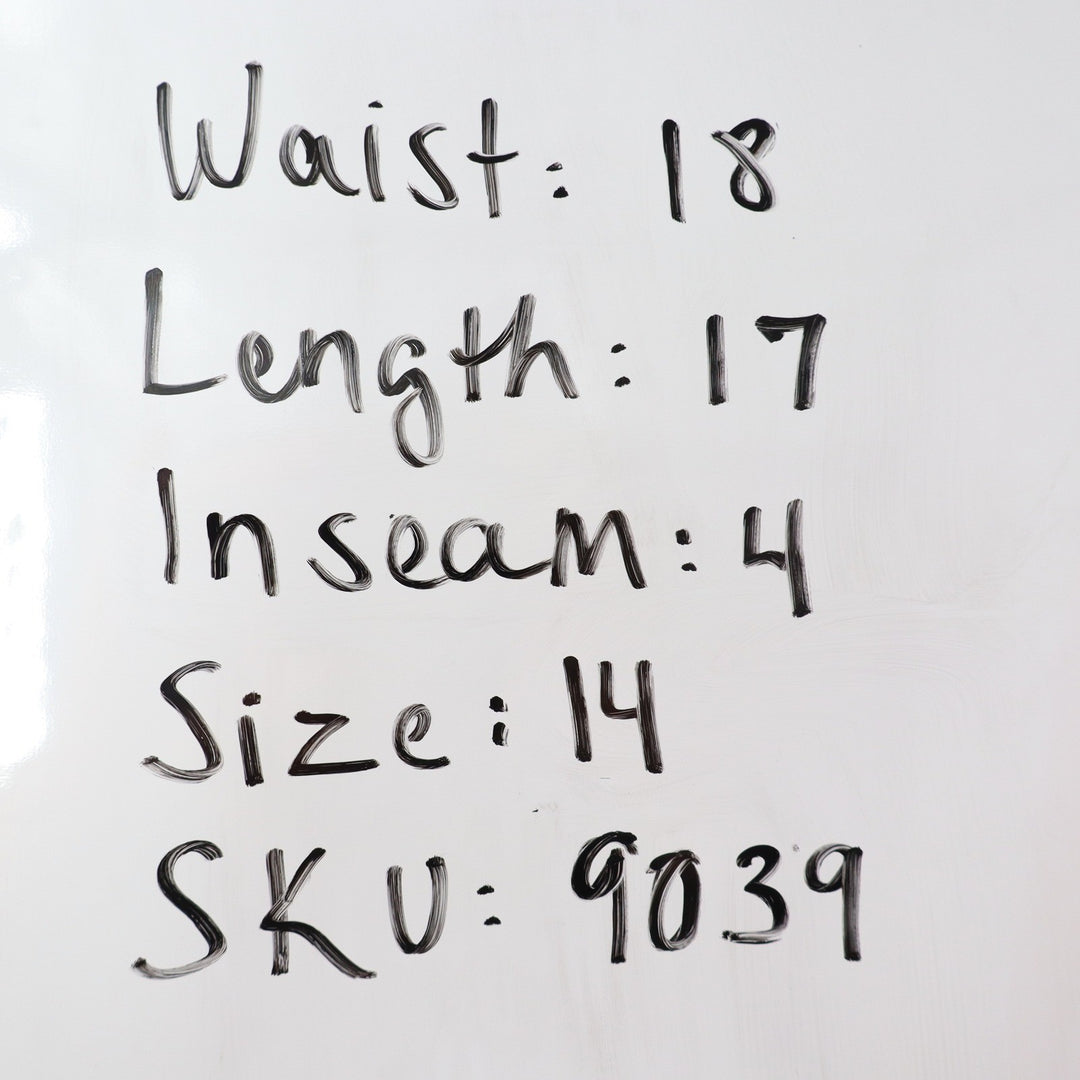 Waist: 18
Length: 17
Inseam: 4
Size: 14
SKU: 9039